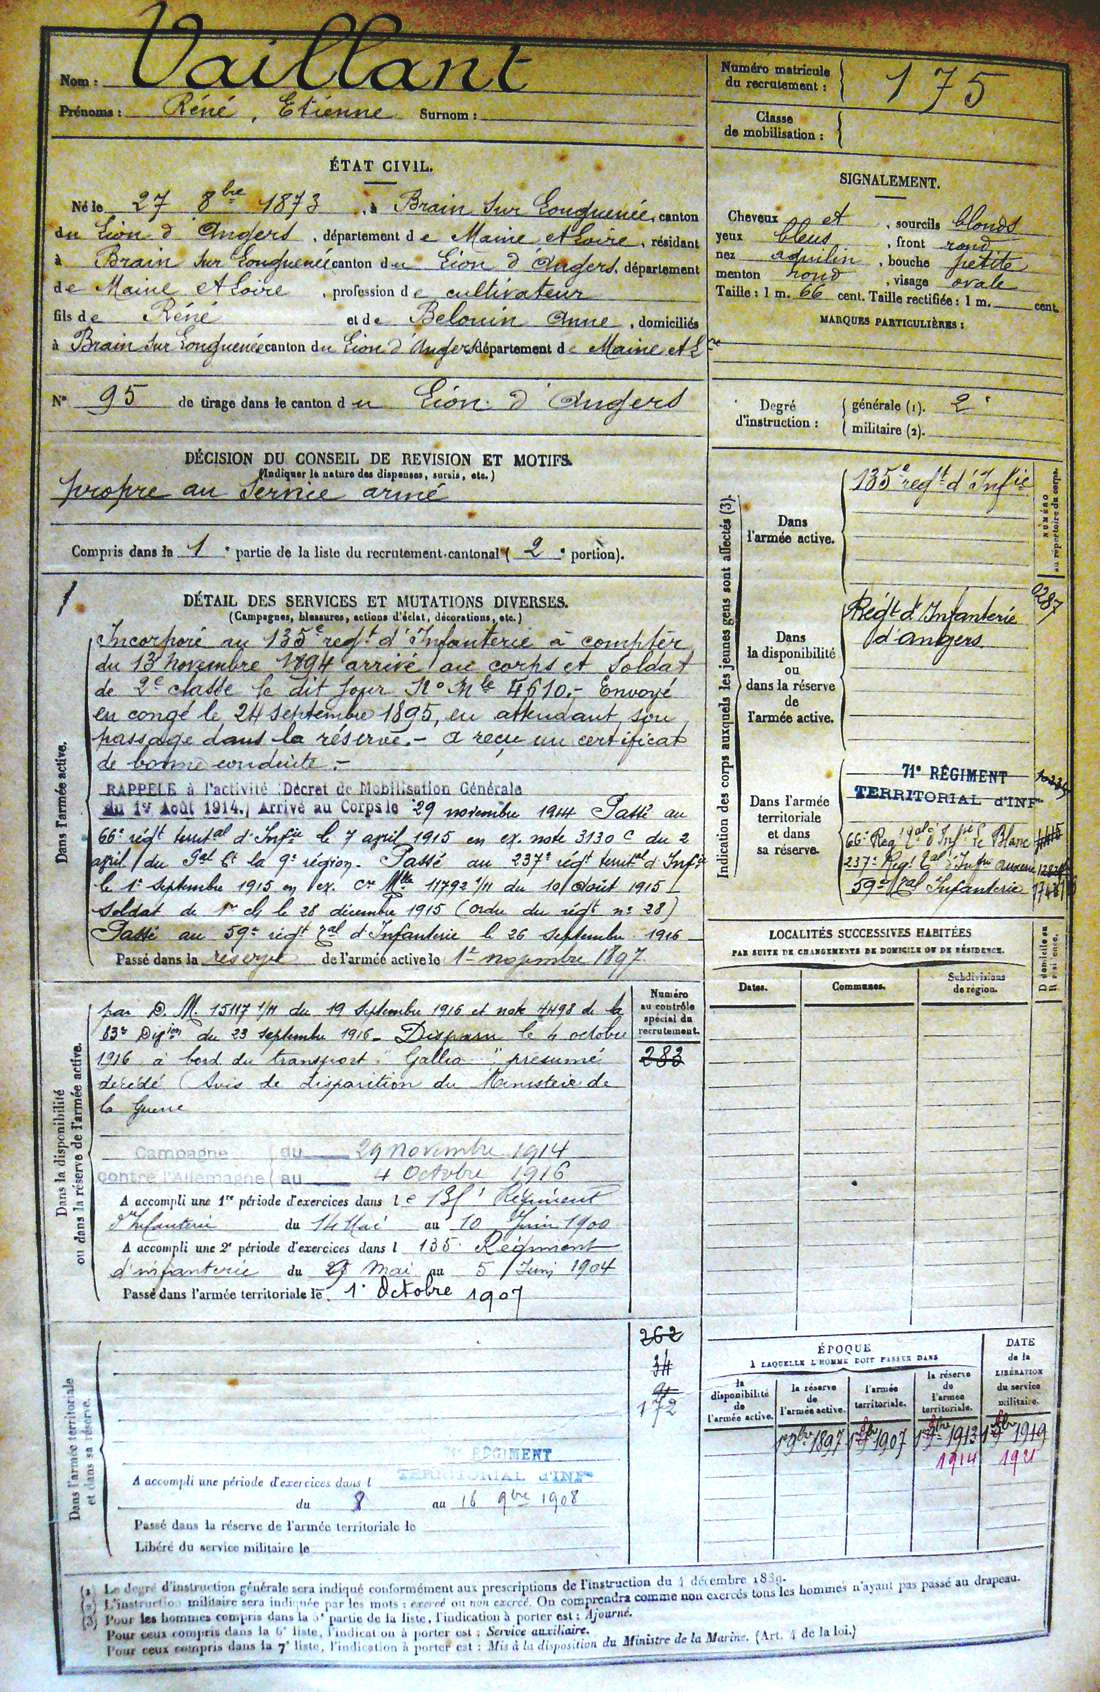 Nom : Vaillant
Prénoms : Réné, Etienne Surnom :
Numéro matricule du recrutement : 175
Classe de mobilisation :
ÉTAT CIVIL.
Né le 27 8bre 1873, à Brain sur Longuenée, canton
du Lion d'Angers, département de Maine et Loire, résidant
à Brain sur Longuenée canton du Lion d'Angers, département
de Maine et Loire, profession de cultivateur
fils de Réné et de Belouin Anne, domiciliés
à Brain sur Longuenée canton du Lion d'Angers département de Maine et Lre
N° 95 de tirage dans le canton du Lion d'Angers
SIGNALEMENT.
Cheveux et, sourcils blonds
yeux bleus, front rond
nez aquilin, bouche petite
menton rond, visage ovale
Taille : 1 m. 66 cent. Taille rectifiée : 1 m. cent.
MARQUES PARTICULIÈRES :
Degré d'instruction : générale (1). 2
militaire (2).
DÉCISION DU CONSEIL DE REVISION ET MOTIFS.
(Indiquer la nature des dispenses, sursis, etc.)
propre au service armé
Compris dans la 1e partie de la liste du recrutement cantonal (2e portion).
DÉTAIL DES SERVICES ET MUTATIONS DIVERSES.
(Campagnes, blessures, actions d'éclat, décorations, etc.)
Dans l'armée active.
Incorporé au 135e regt d'Infanterie à compter
du 13 novembre 1894 arrivé au corps et soldat
de 2e classe le dit jour No Mle 4610.- Envoyé
en congé le 24 septembre 1895, en attendant son
passage dans la réserve.- a reçu un certificat
de bonne conduite.-
RAPPELÉ à l'activité (Décret de Mobilisation Générale
du 1er Août 1914.) Arrivé au Corps le 29 novembre 1914 Passé au
66e régt territal d'Infie le 7 avril 1915 en ex. note 3130 C du 2
avril du Gal Ct la 9e région. Passé au 237e régt territal d'Infie
le 1er septembre 1915 en ex. Cre Mlle 11792 1/11 du 10 Août 1915
Soldat de 1re cl le 28 décembre 1915 (ordre du régt no 28)
Passé au 59e régt tal d'Infanterie le 26 septembre 1916
Passé dans la réserve de l'armée active le 1er novembre 1897.
Dans la disponibilité ou dans la réserve de l'armée active.
par D. M. 15117 1/11 du 19 septembre 1916 et note 4498 de la
83e Dion du 23 septembre 1916 - Disparu le 4 octobre
1916 à bord du transport " Gallia " présumé
décédé (Avis de disparition du Ministère de
la Guerre
Campagne contre l'Allemagne du 29 novembre 1914
au 4 Octobre 1916
A accompli une 1re période d'exercices dans le 135e Régiment
d'Infanterie du 14 Mai au 10 Juin 1900
A accompli une 2e période d'exercices dans l 135e Régiment
d'infanterie du Mai au 5 Juin 1904
Passé dans l'armée territoriale le 1er Octobre 1907
Numéro au contrôle spécial du recrutement.
283
262
34
172
Dans l'armée territoriale et dans sa réserve.
RÉGIMENT
A accompli une période d'exercices dans l TERRITORIAL d'INFie
du 8 au 16 9bre 1908
Passé dans la réserve de l'armée territoriale le
Libéré du service militaire le
Indication des corps auxquels les jeunes gens sont affectés (3).
NUMÉRO au répertoire du corps.
Dans l'armée active.
135e regt d'Infie
Dans la disponibilité ou dans la réserve de l'armée active.
Régt d'Infanterie
d'angers
2287
Dans l'armée territoriale et dans sa réserve.
71e RÉGIMENT
TERRITORIAL d'INFie
66e Reg Tal d'Infie Le Blanc
237e Regt Tal d'Infie
59e Tal Infanterie
LOCALITÉS SUCCESSIVES HABITÉES
PAR SUITE DE CHANGEMENTS DE DOMICILE OU DE RÉSIDENCE.
Dates. Communes. Subdivisions de région. D domicile ou R résidence.
ÉPOQUE
À LAQUELLE L'HOMME DOIT PASSER DANS
la disponibilité de l'armée active.
la réserve de l'armée active.
l'armée territoriale.
la réserve de l'armée territoriale.
DATE de la LIBÉRATION du service militaire.
1er 9bre 1897 1er 8bre 1907 1er 8bre 1913 1er 8bre 1919
1914 1921
(1) Le degré d'instruction générale sera indiqué conformément aux prescriptions de l'instruction du 4 décembre 1889.
(2) L'instruction militaire sera indiquée par les mots : exercé ou non exercé. On comprendra comme non exercés tous les hommes n'ayant pas passé au drapeau.
(3) Pour les hommes compris dans la 5e partie de la liste, l'indication à porter est : Ajourné.
Pour ceux compris dans la 6e liste, l'indication à porter est : Service auxiliaire.
Pour ceux compris dans la 7e liste, l'indication à porter est : Mis à la disposition du Ministre de la Marine. (Art. 4 de la loi.)